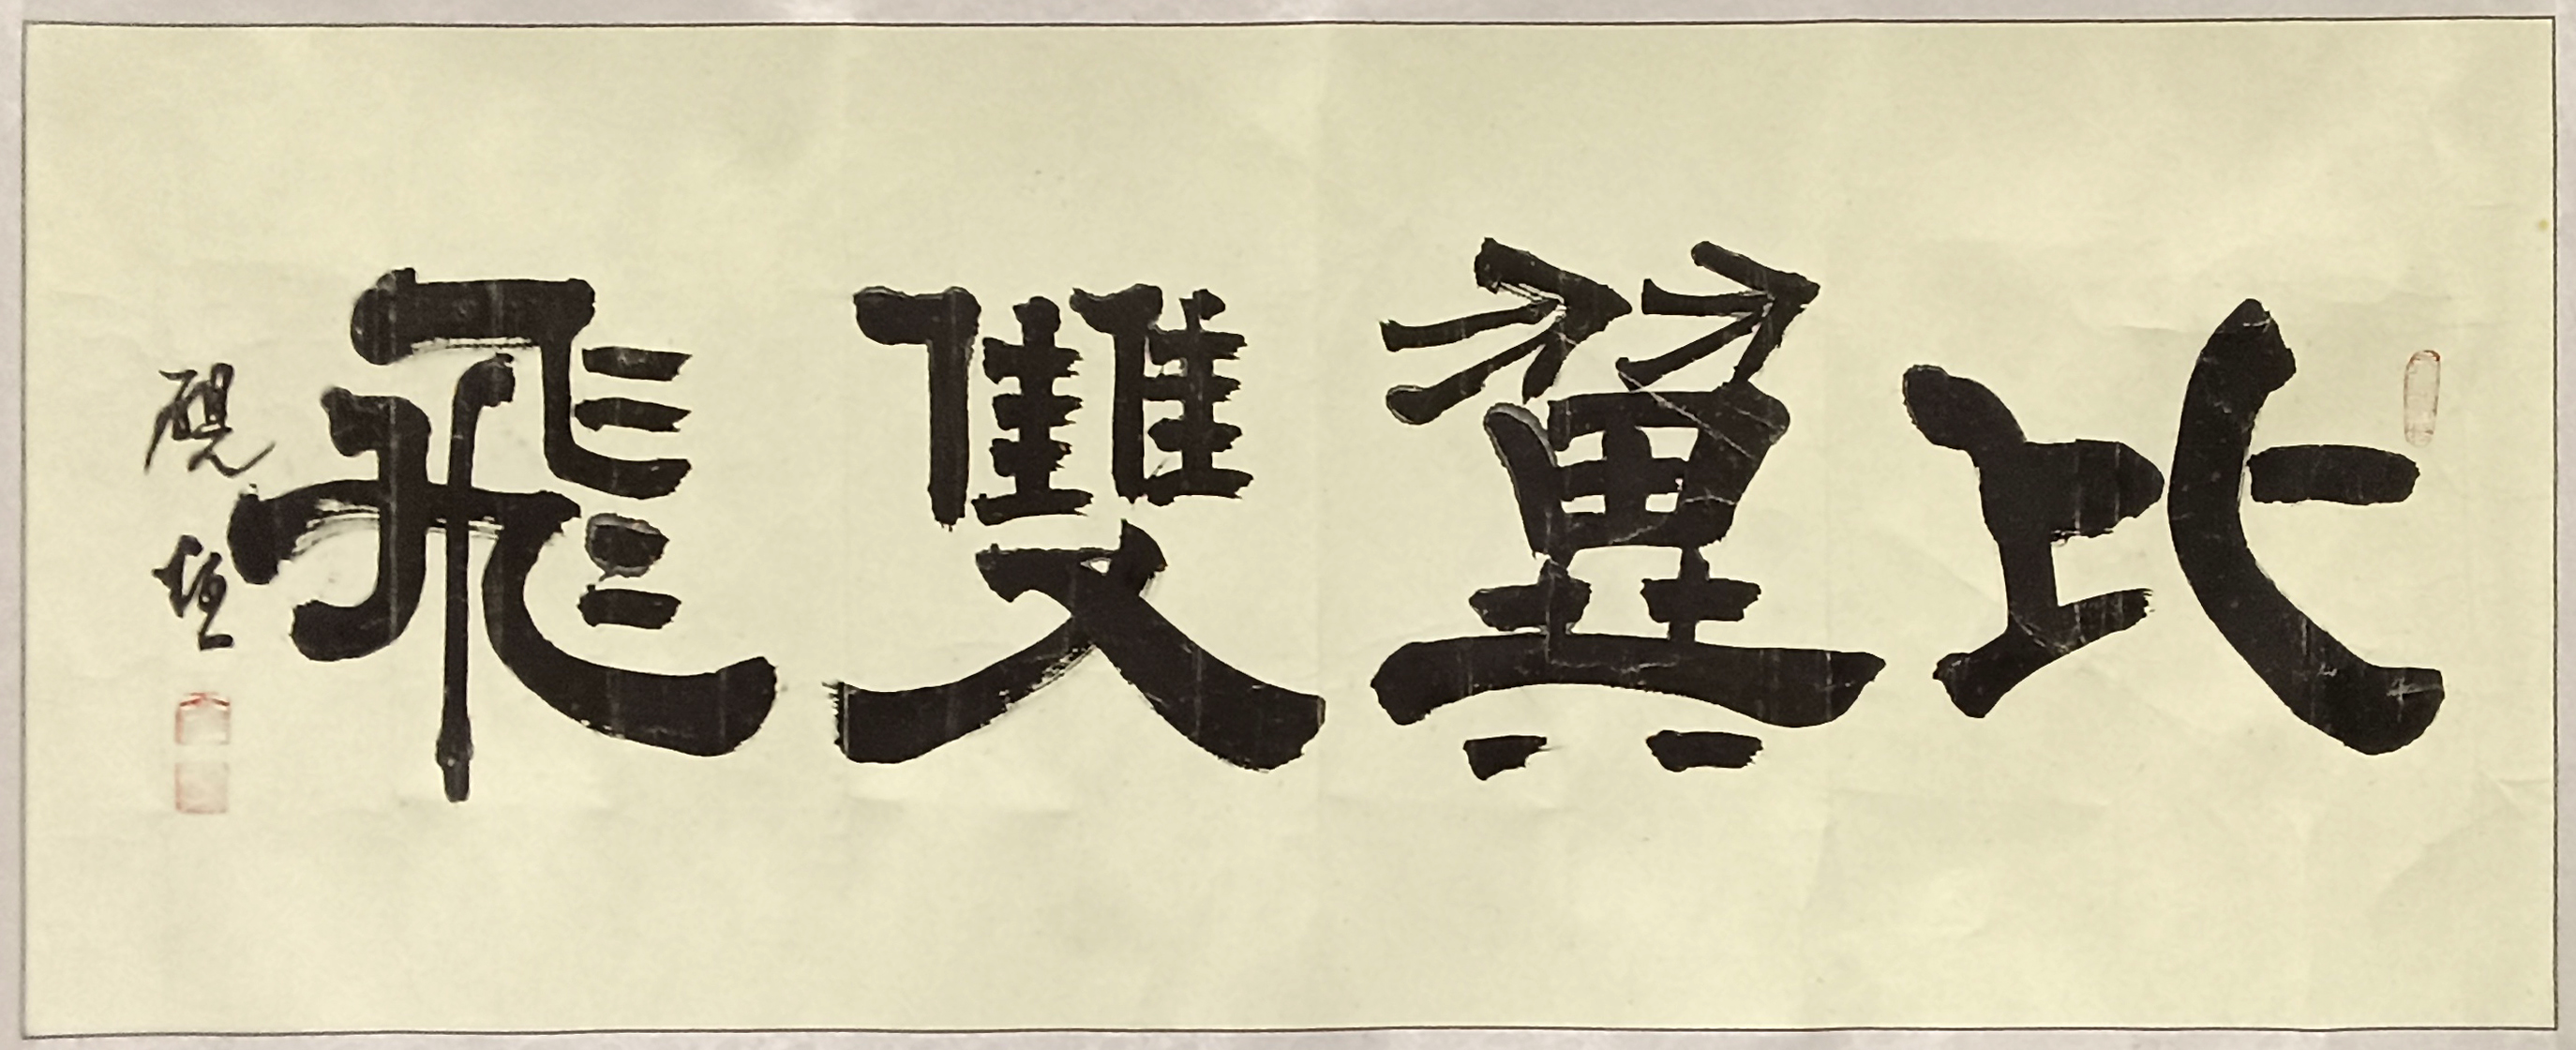 比翼雙飛
硯垣